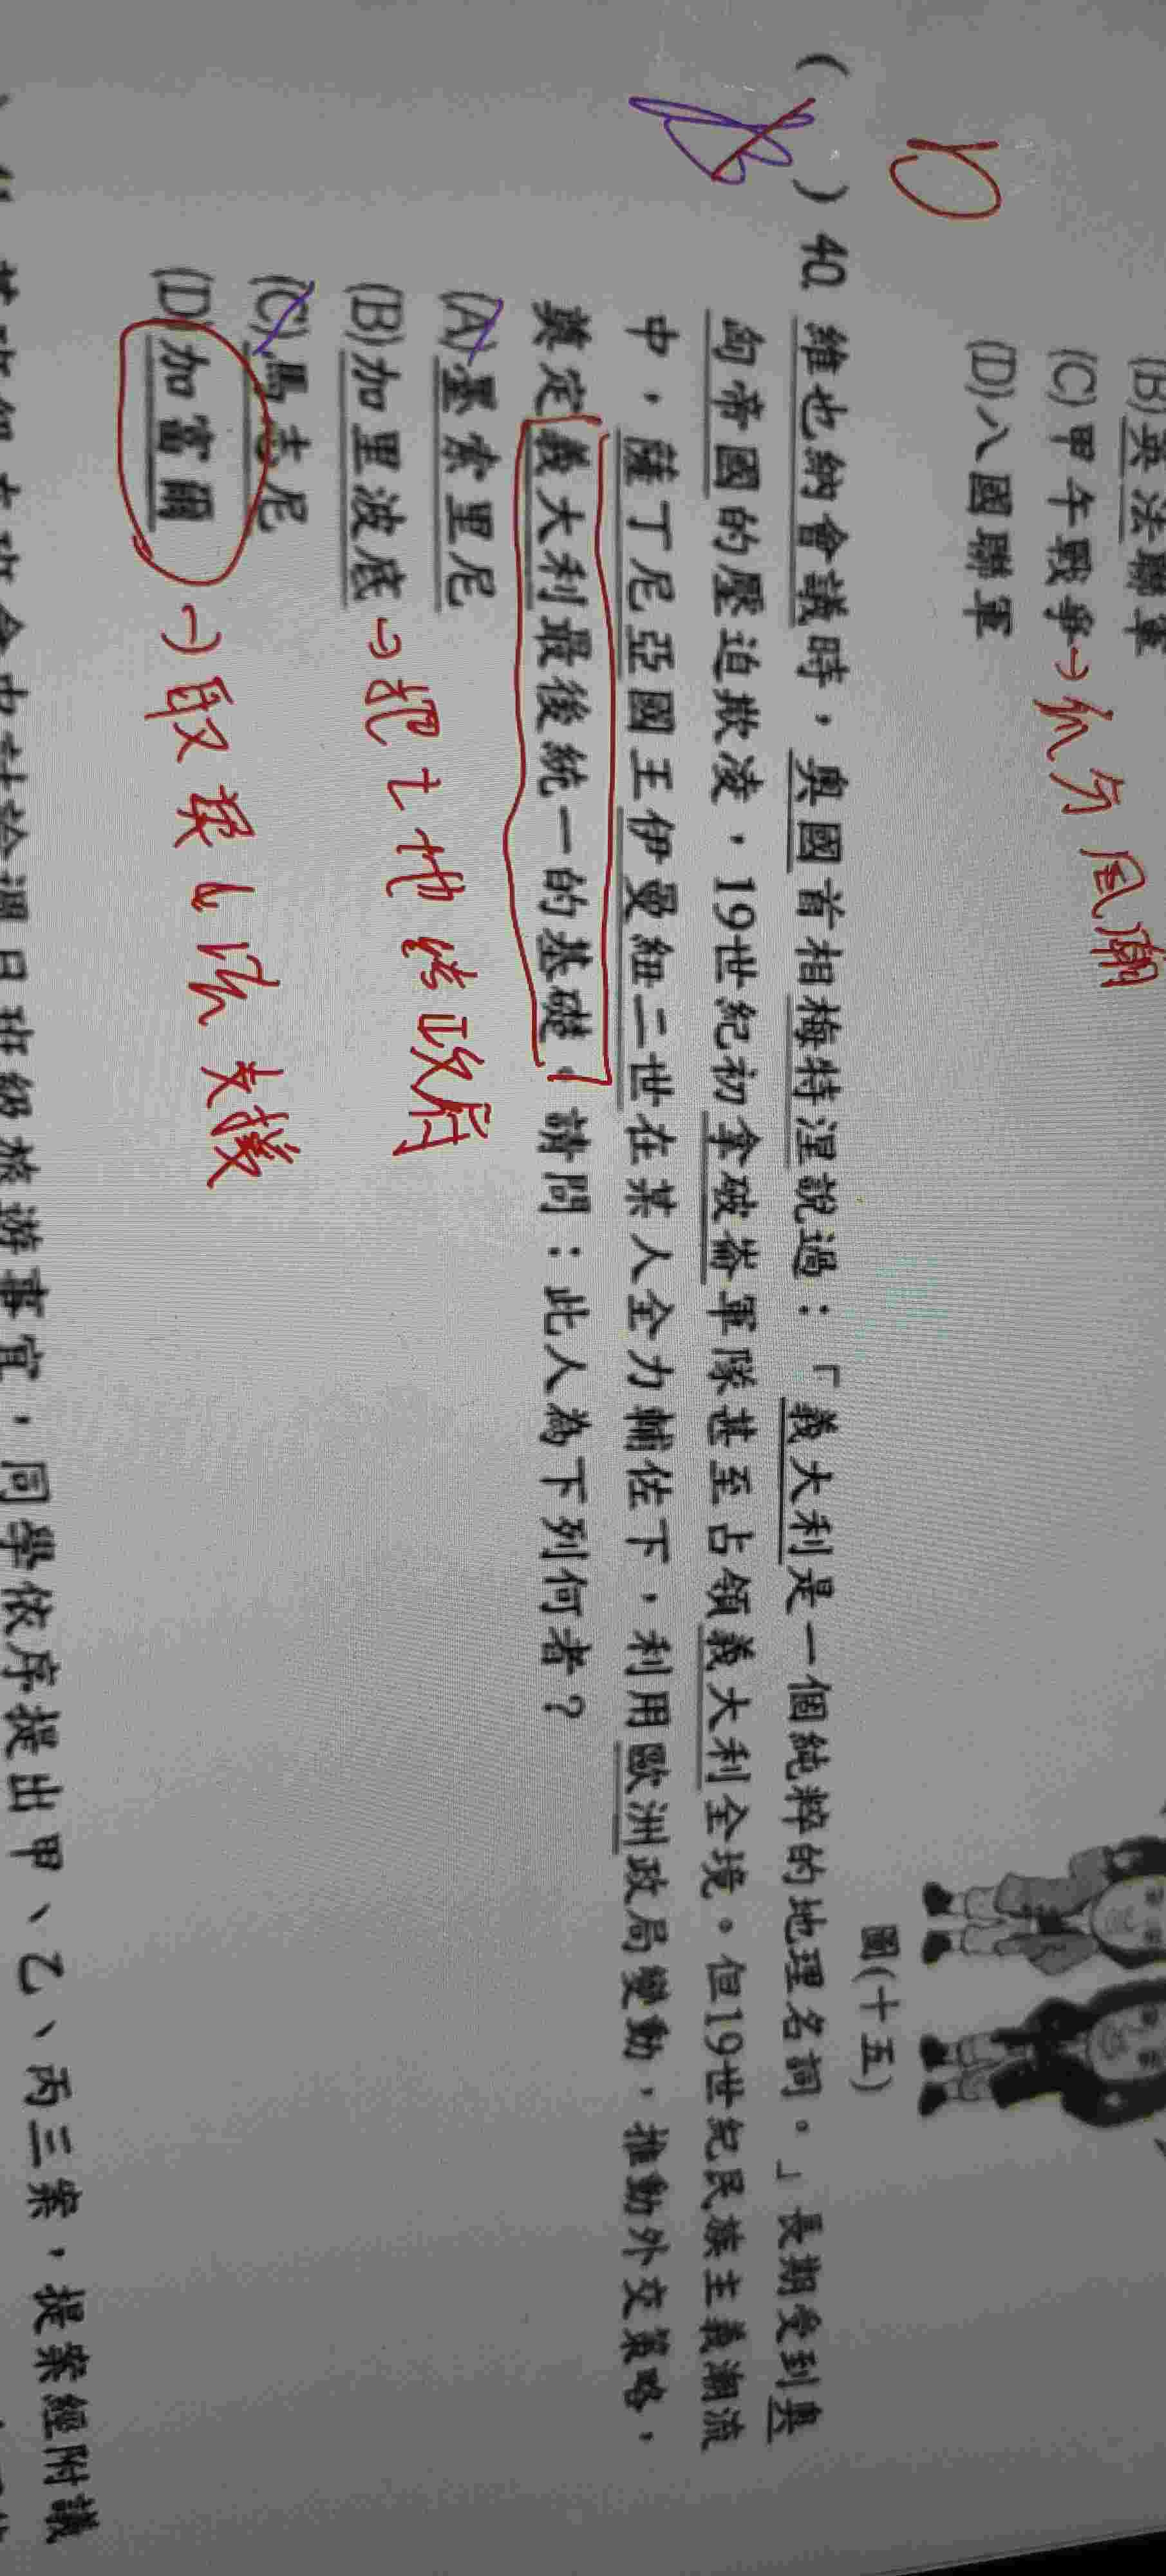 (B)英法聯軍
(C)甲午戰爭→瓜分風潮
(D)八國聯軍
圖(十五)
D
( B ) 40. 維也納會議時，奧國首相梅特涅說過：「義大利是一個純粹的地理名詞。」長期受到奧
匈帝國的壓迫欺凌，19世紀初拿破崙軍隊甚至占領義大利全境。但19世紀民族主義潮流
中，薩丁尼亞國王伊曼紐二世在某人全力輔佐下，利用歐洲政局變動，推動外交策略，
奠定義大利最後統一的基礎。請問：此人為下列何者？
(A)墨索里尼
(B)加里波底→把土地給政府
(C)馬志尼
(D)加富爾→取英、法支援
會中討論週日班級旅遊事宜，同學依序提出甲、乙、丙三案，提案經附議